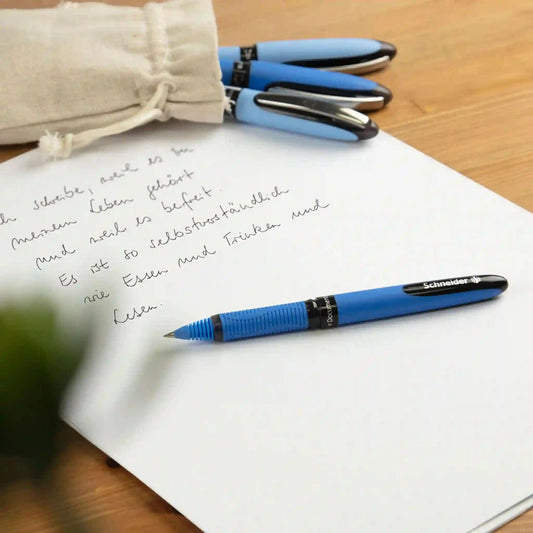 ch schreibe, weil es zu
meinem Leben gehört
und weil es befreit.
Es ist so selbstverständlich
wie Essen und Trinken und
Lesen.
Schneider
Docum